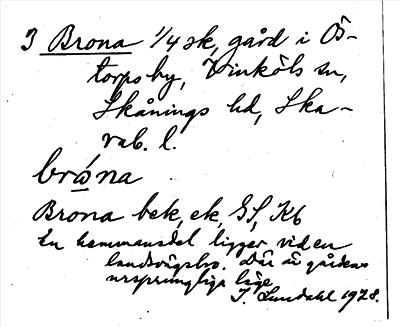 3 Brona 1/4 sk, gård i Ös-
torps by, Vinköls sn,
Skånings hd, Ska-
rab. l.
brǿna
Brona bek, ek, GS, Kb
En hemmansdel ligger vid en
landsvägsbro. Där är gårdens
ursprungliga läge.
I. Lundahl 1928.